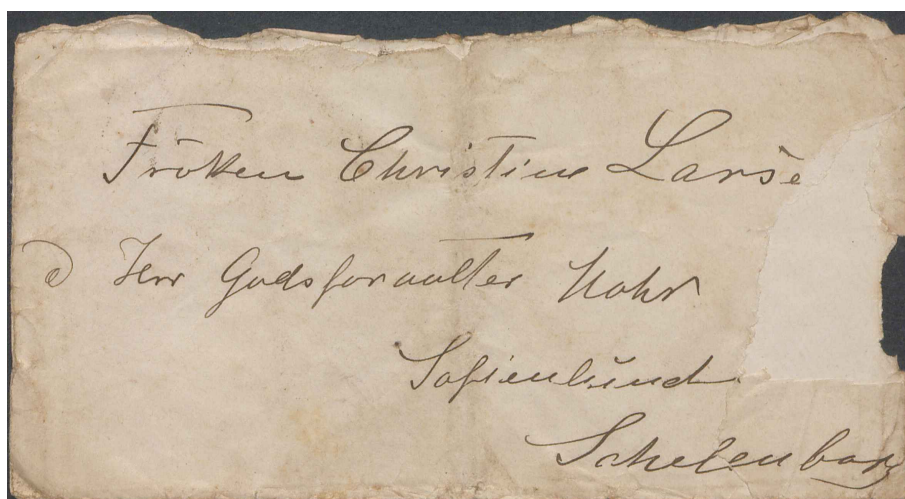 Fröken Christine Larse
d Herr Godsforvalter Mohr
Sofienlund
Schelenborg